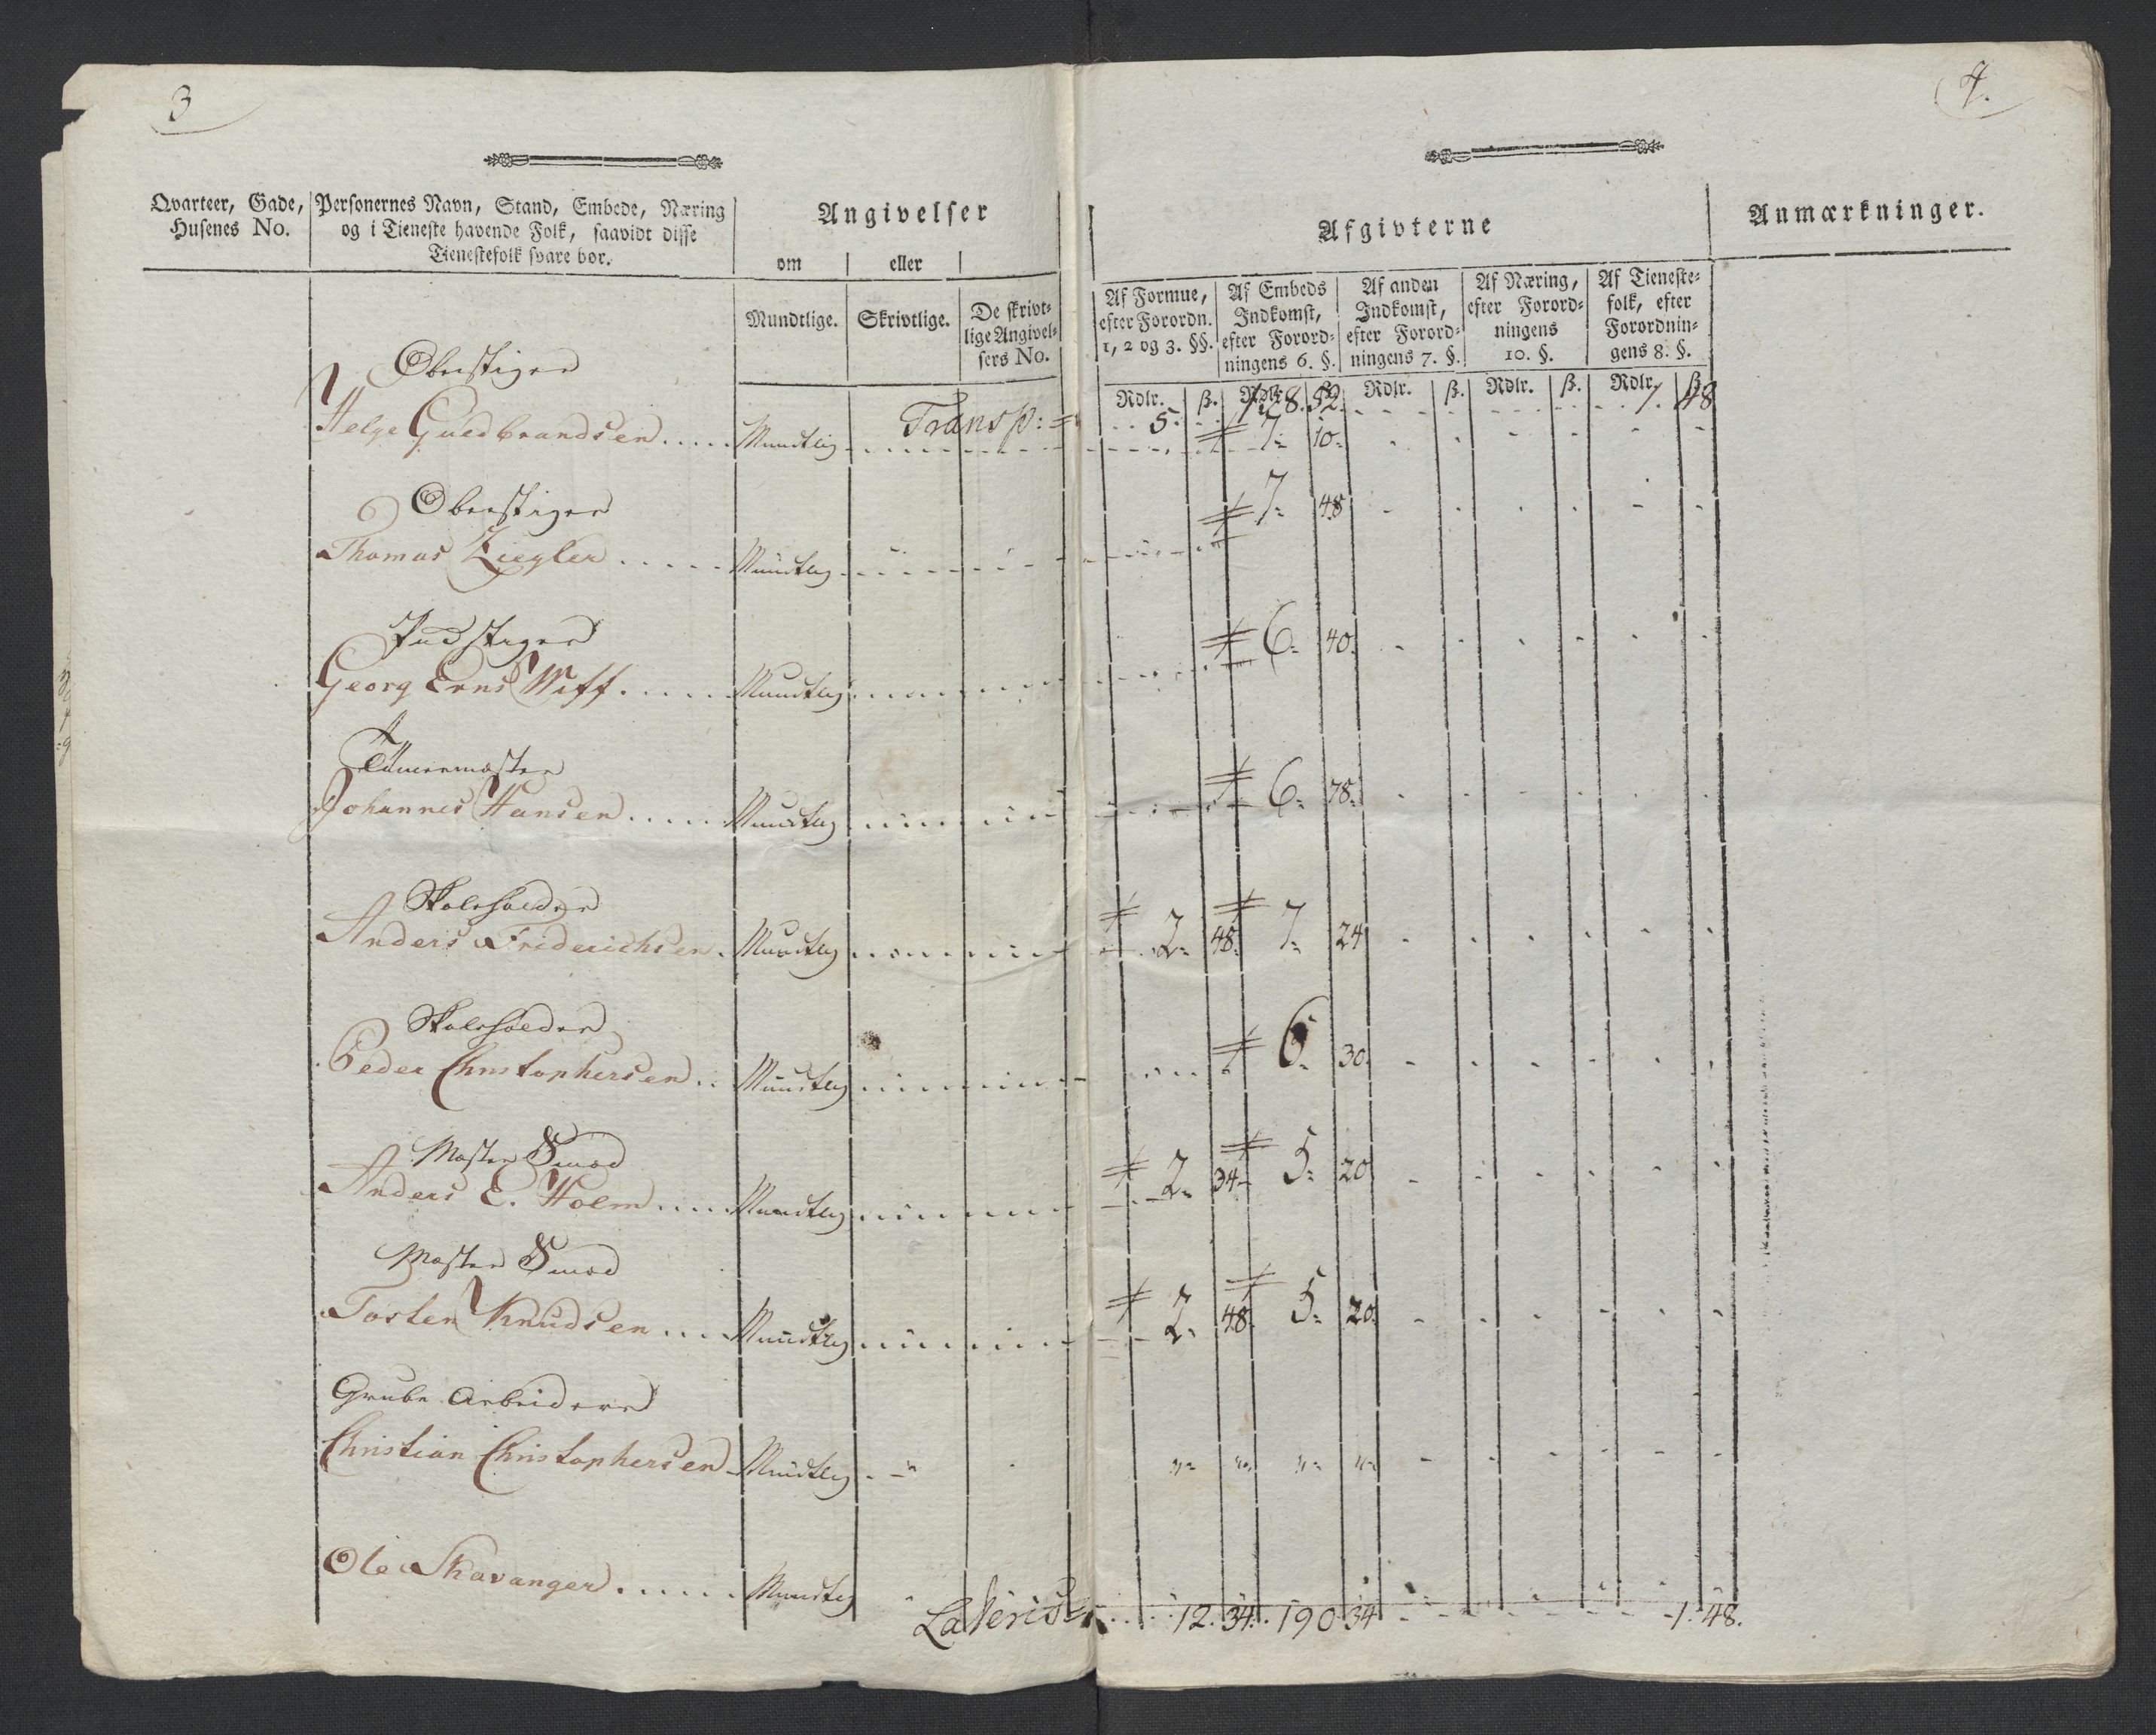 3
4.
Qvarteer, Gade, Husenes No.
Personernes Navn, Stand, Embede, Næring og i Tieneste havende Folk, saavidt disse Tienestefolk svare bør.
Angivelser
om eller
Mundtlige. Skrivtlige. De skrivtlige Angivelsers No.
Afgivterne
Af Formue, efter Forordn. 1, 2 og 3. §§.
Af Embeds Indkomst, efter Forordningens 6. §.
Af anden Indkomst, efter Forordningens 7. §.
Af Næring, efter Forordningens 10. §.
Af Tienestefolk, efter Forordningens 8. §.
Anmærkninger.
Rdlr. ß. Rdlr. ß. Rdlr. ß. Rdlr. ß. Rdlr. ß.
Transp: 5. 128. 52. 1. 48
Oberstiger
Helge Guedbrandsen Mundtlig 7. 10.
Oberstiger
Thomas Ziegler Mundtlig 7. 48
Georg Erns Wiff Mundtlig 6. 40.
Johannes Hansen Mundtlig 6. 78.
Skoleholder
Anders Friderichsen Mundtlig 2. 48. 7. 24
Skoleholder
Peder Christophersen Mundtlig 6. 30.
Mester Smed
Anders E. Holm Mundtlig 2. 34 5. 20
Mester Smed
Tosten Knudsen Mundtlig 2. 48. 5. 20.
Grube Arbeidere
Christian Christophersen Mundtlig
Ole Skavanger Mundtlig
Lateris 12. 34. 190 34 1. 48.